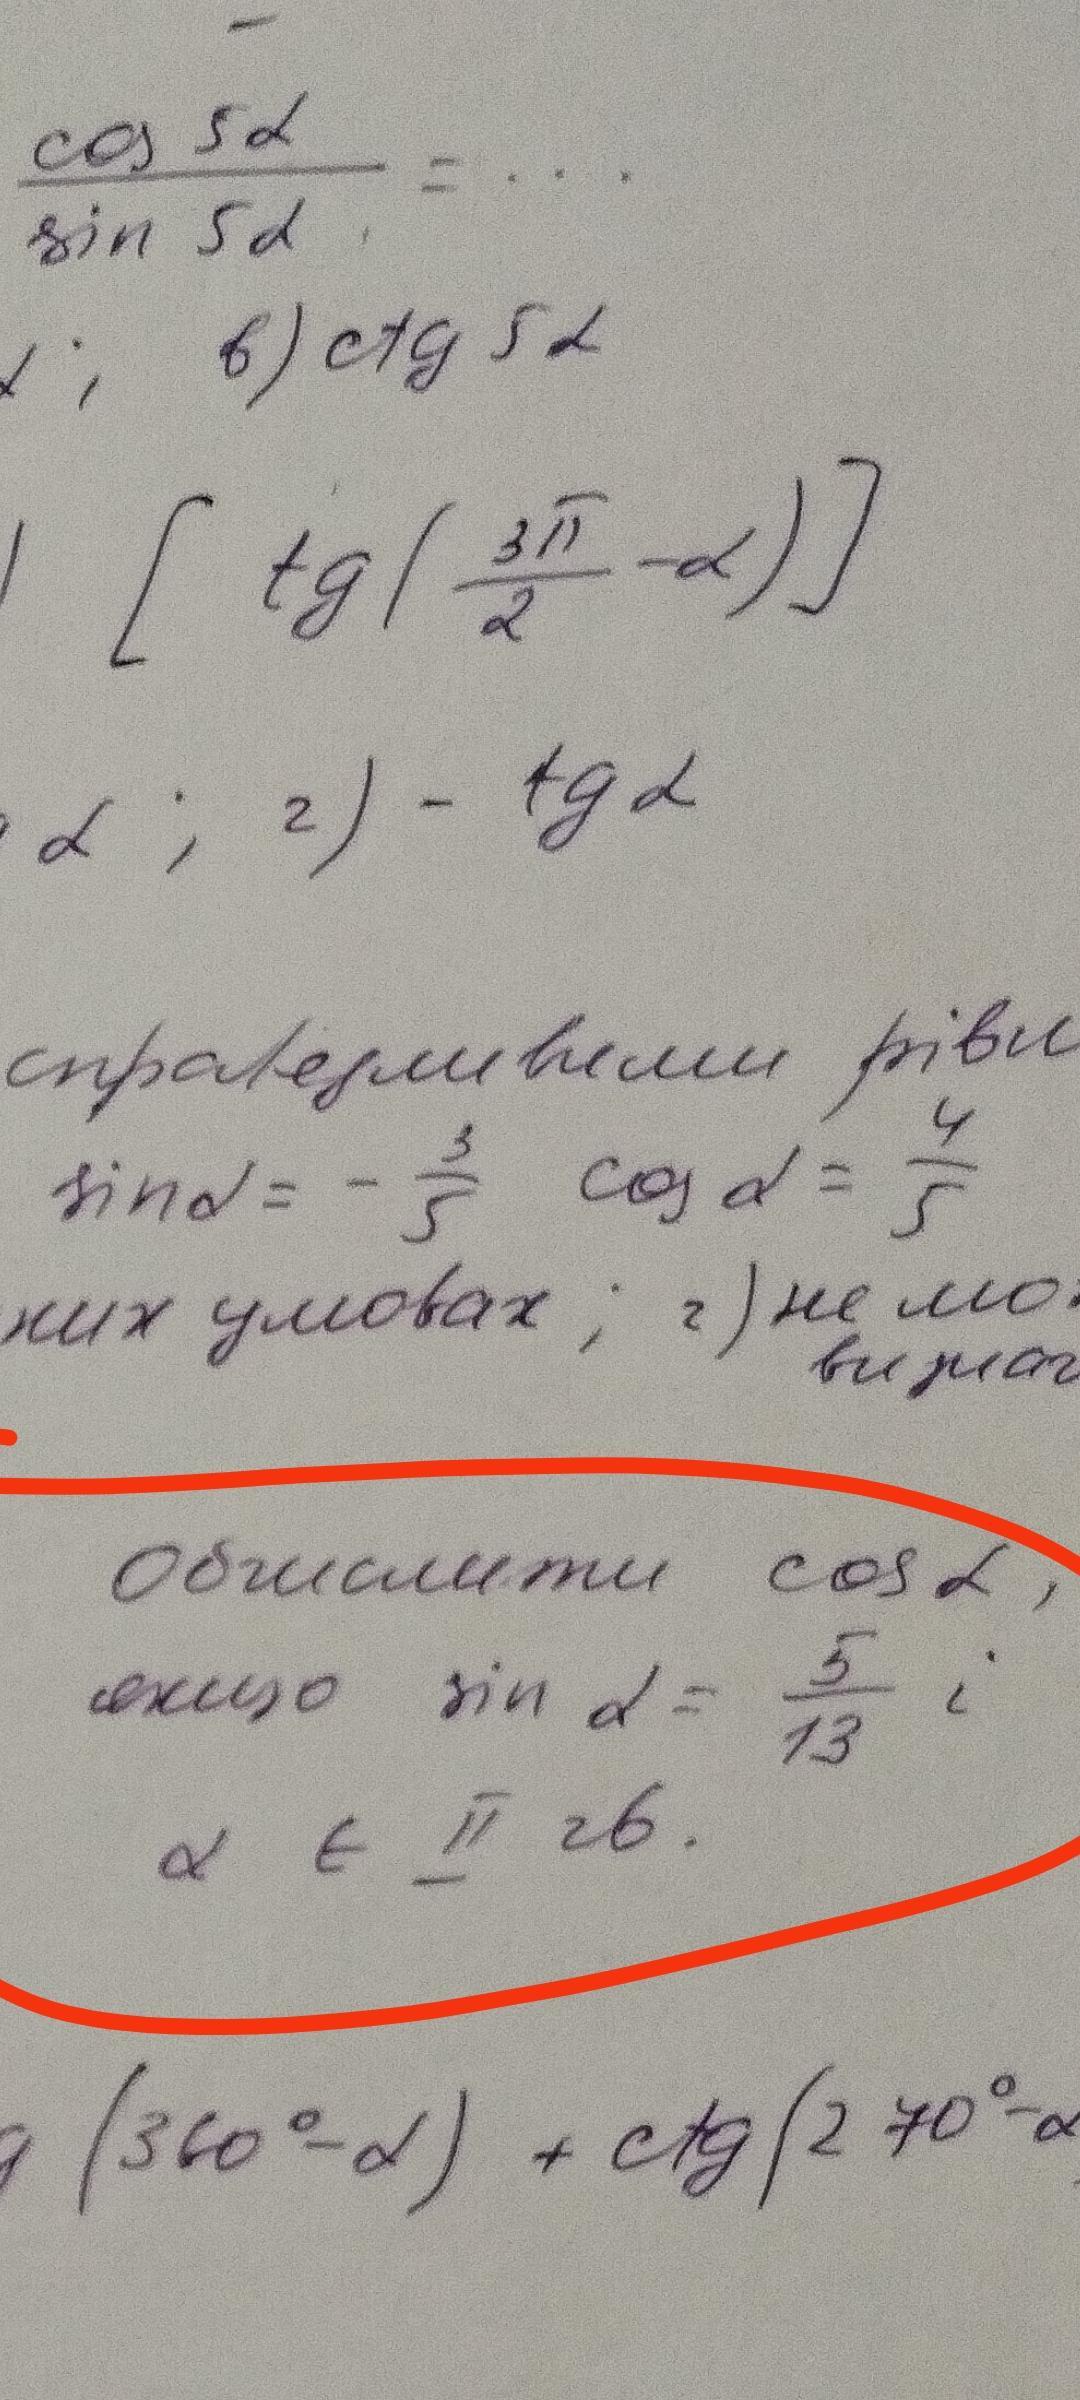 cos 5α
sin 5α
= . . . .
α ; в) ctg 5α
[ tg ( 3π/2 - α ) ]
α ; г) - tg α
справедливими рівн
sin α = - 3/5 cos α = 4/5
умовах ; г) не мо
Обчислити cos α ,
якщо sin α = 5/13 і
α ∈ II чв.
g (360° - α) + ctg (270° - α